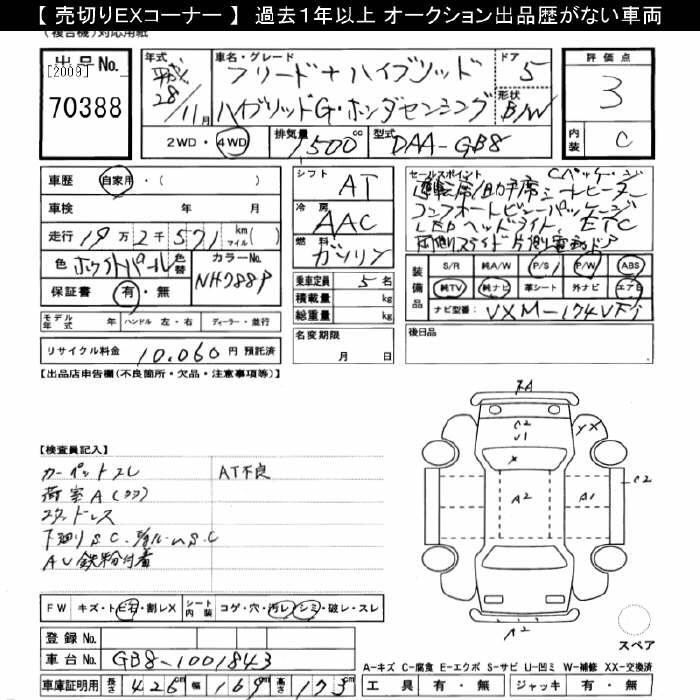 【 売切りEXコーナー 】 過去１年以上 オークション出品歴がない車両
(複合機)対応用紙
出品No.
[2009]
70388
年式
平成28年11月
車名・グレード
フリード+ハイブリッド
ハイブリッドG・ホンダセンシング
ドア
5
形状
B/W
評価点
3
内装
C
2WD・4WD
排気量
1500cc
型式
DAA-GB8
車歴 自家用・( )
車検 年 月
走行 19万2千571 km マイル( )
色 ホワイトパール 色替 カラーNo. NH788P
保証書 有・無
シフト
AT
冷房
AAC
燃料
ガソリン
乗車定員 5名
積載量 kg
総重量 kg
セールスポイント Cパッケージ
運転席/助手席シートヒーター
コンフォートビューパッケージ
LEDヘッドライト、ETC
両側スライド片側電動ドア
装備品
S/R 純A/W P/S P/W ABS
純TV 純ナビ 革シート 外ナビ エアB
ナビ型番: VXM-174VFi
モデル年式 年 ハンドル 左・右 ディーラー・並行
リサイクル料金 10,060 円 預託済
名変期限
月 日
後日品
【出品店申告欄(不良箇所・欠品・注意事項等)】
【検査員記入】
カーペットスレ AT不良
荷室A(
スタッドレス
下廻りSC、
鉄粉付着
FW キズ・トビ石・割レX シート内装 コゲ・穴・汚レ・シミ・破レ・スレ
登録No.
車台No. GB8-1001843
車庫証明用 長さ 426cm 幅 169cm 高さ 173cm
C2
YX
A2
A1
C2
A2
スペア
A-キズ C-腐食 E-エクボ S-サビ U-凹ミ W-補修 XX-交換済
工具 有・無 ジャッキ 有・無